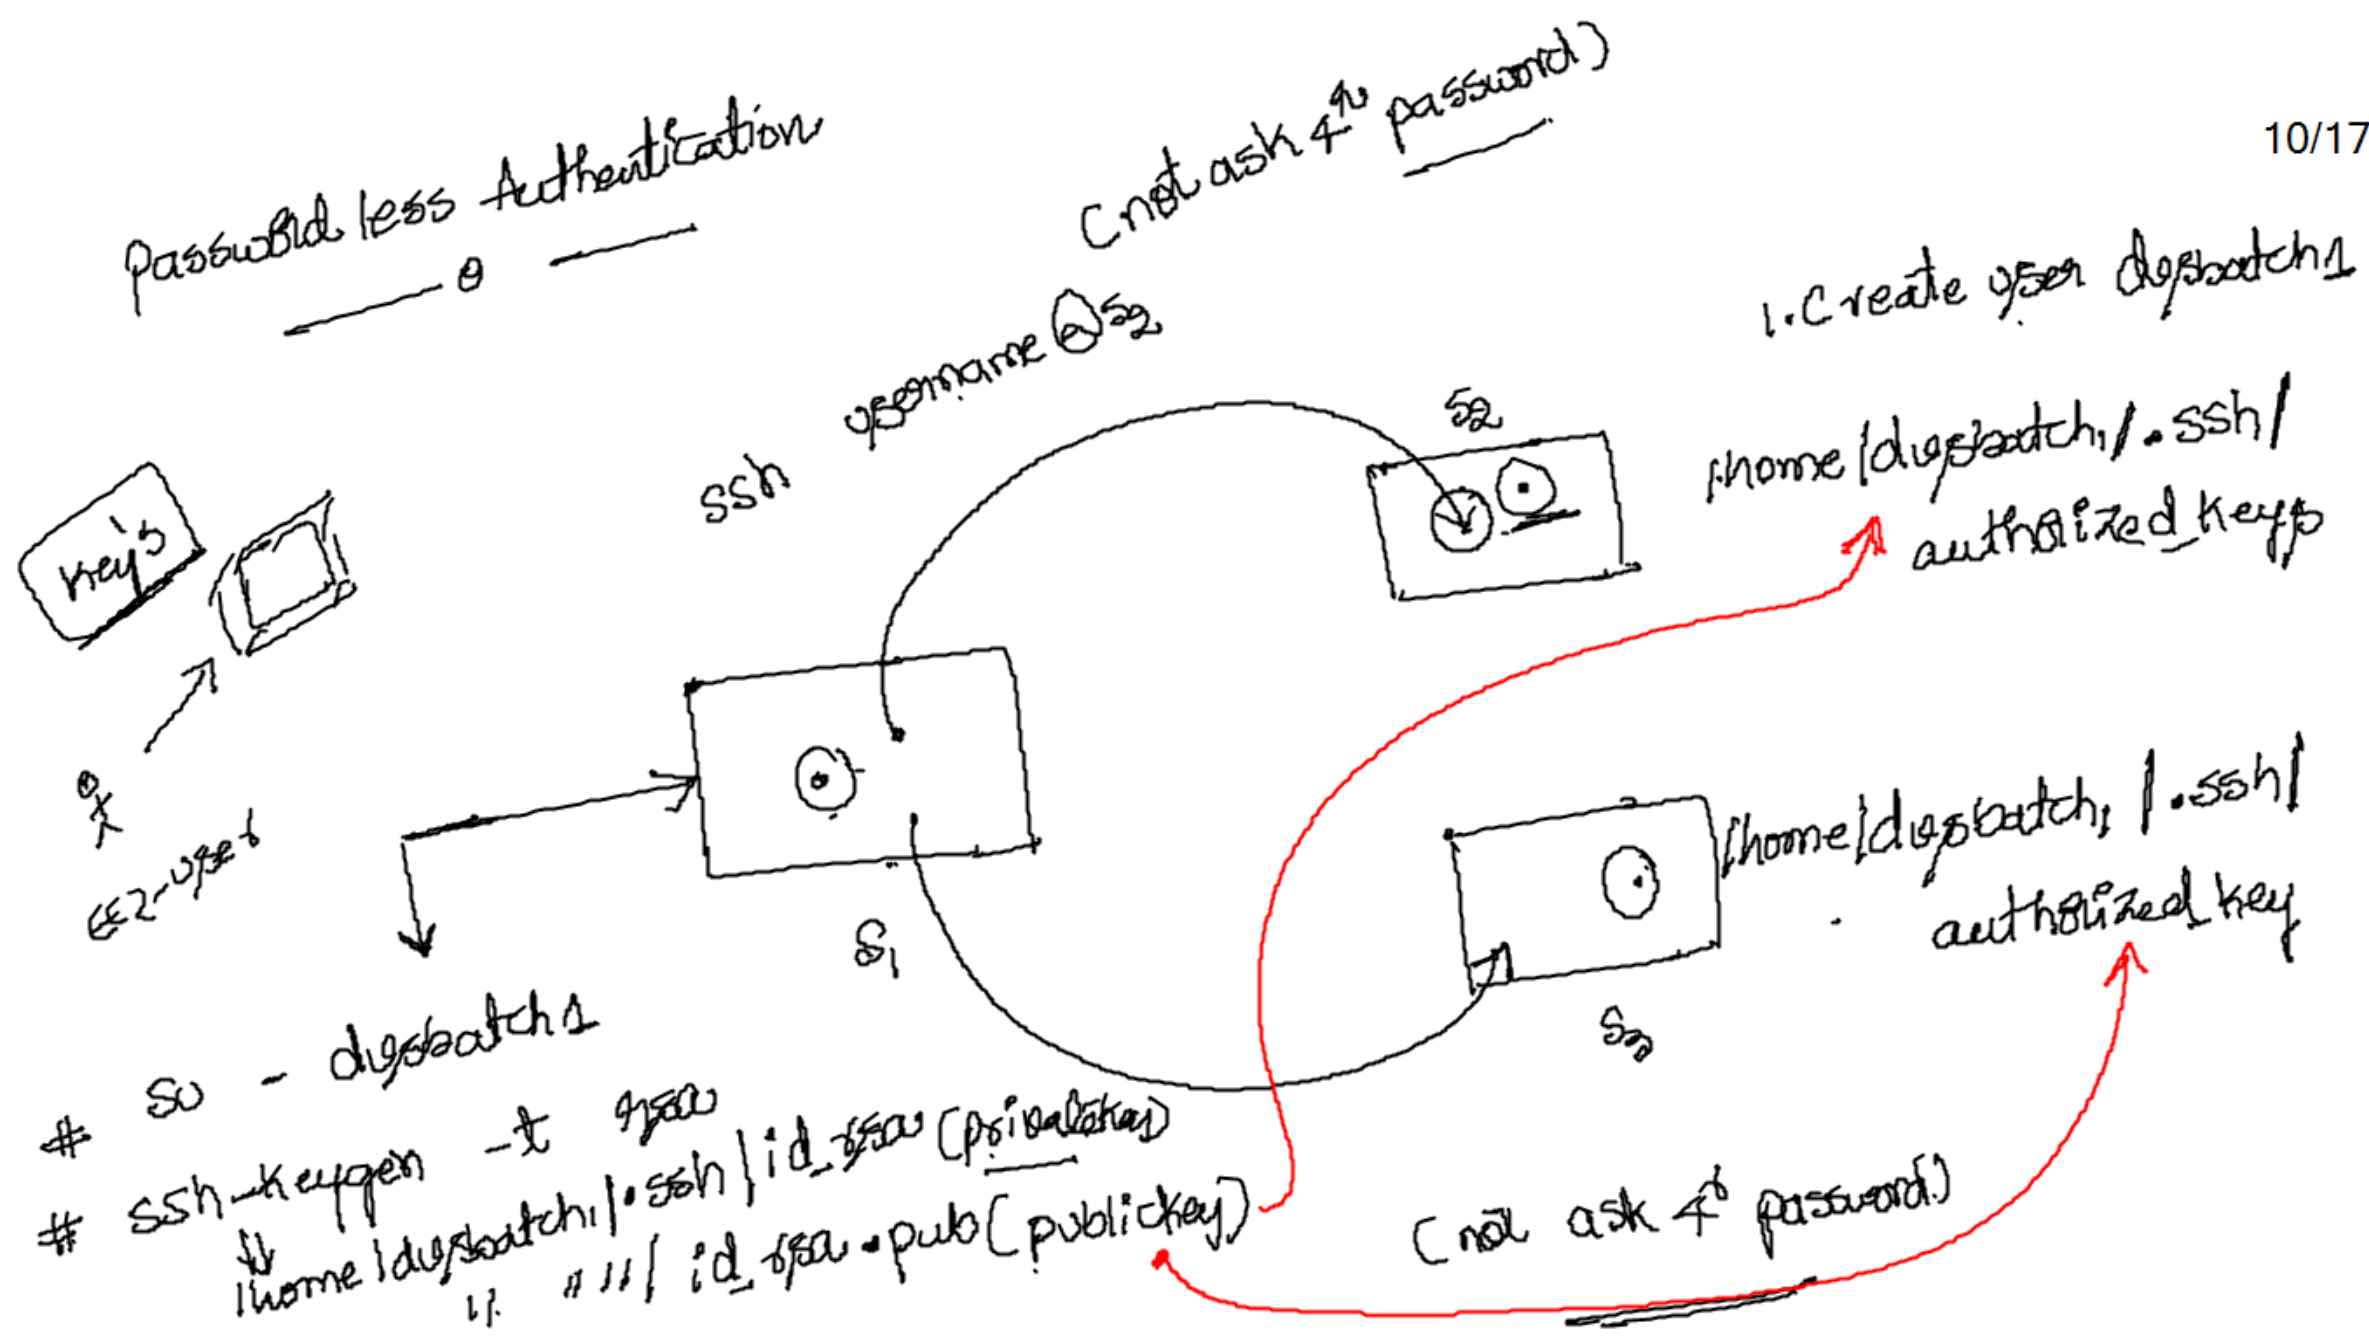 Password less Authentication
(not ask 4r password)
10/17
1. Create user dvsbatch1
ssh username@S2
S2
/home/dvsbatch1/.ssh/
authorized_keys
key's
EC2-user
S1
/home/dvsbatch1/.ssh/
authorized_key
S3
# su - dvsbatch1
# ssh-keygen -t rsa
/home/dvsbatch1/.ssh/id_rsa (privatekey)
" " " / id_rsa.pub (publickey)
(not ask 4r password)